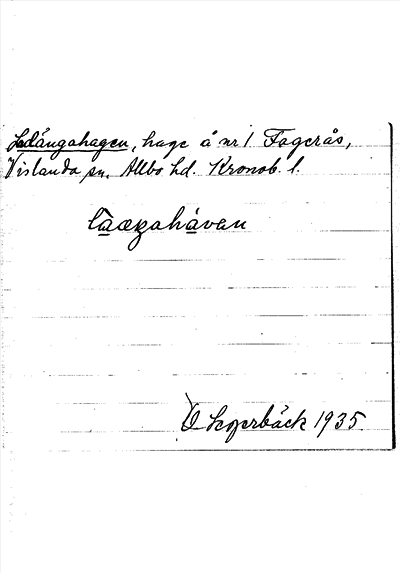 Ladängahagen, hage å nr 1 Fagerås,
Vislanda sn. Allbo hd. Kronob. l.
O Lagerbäck 1935.